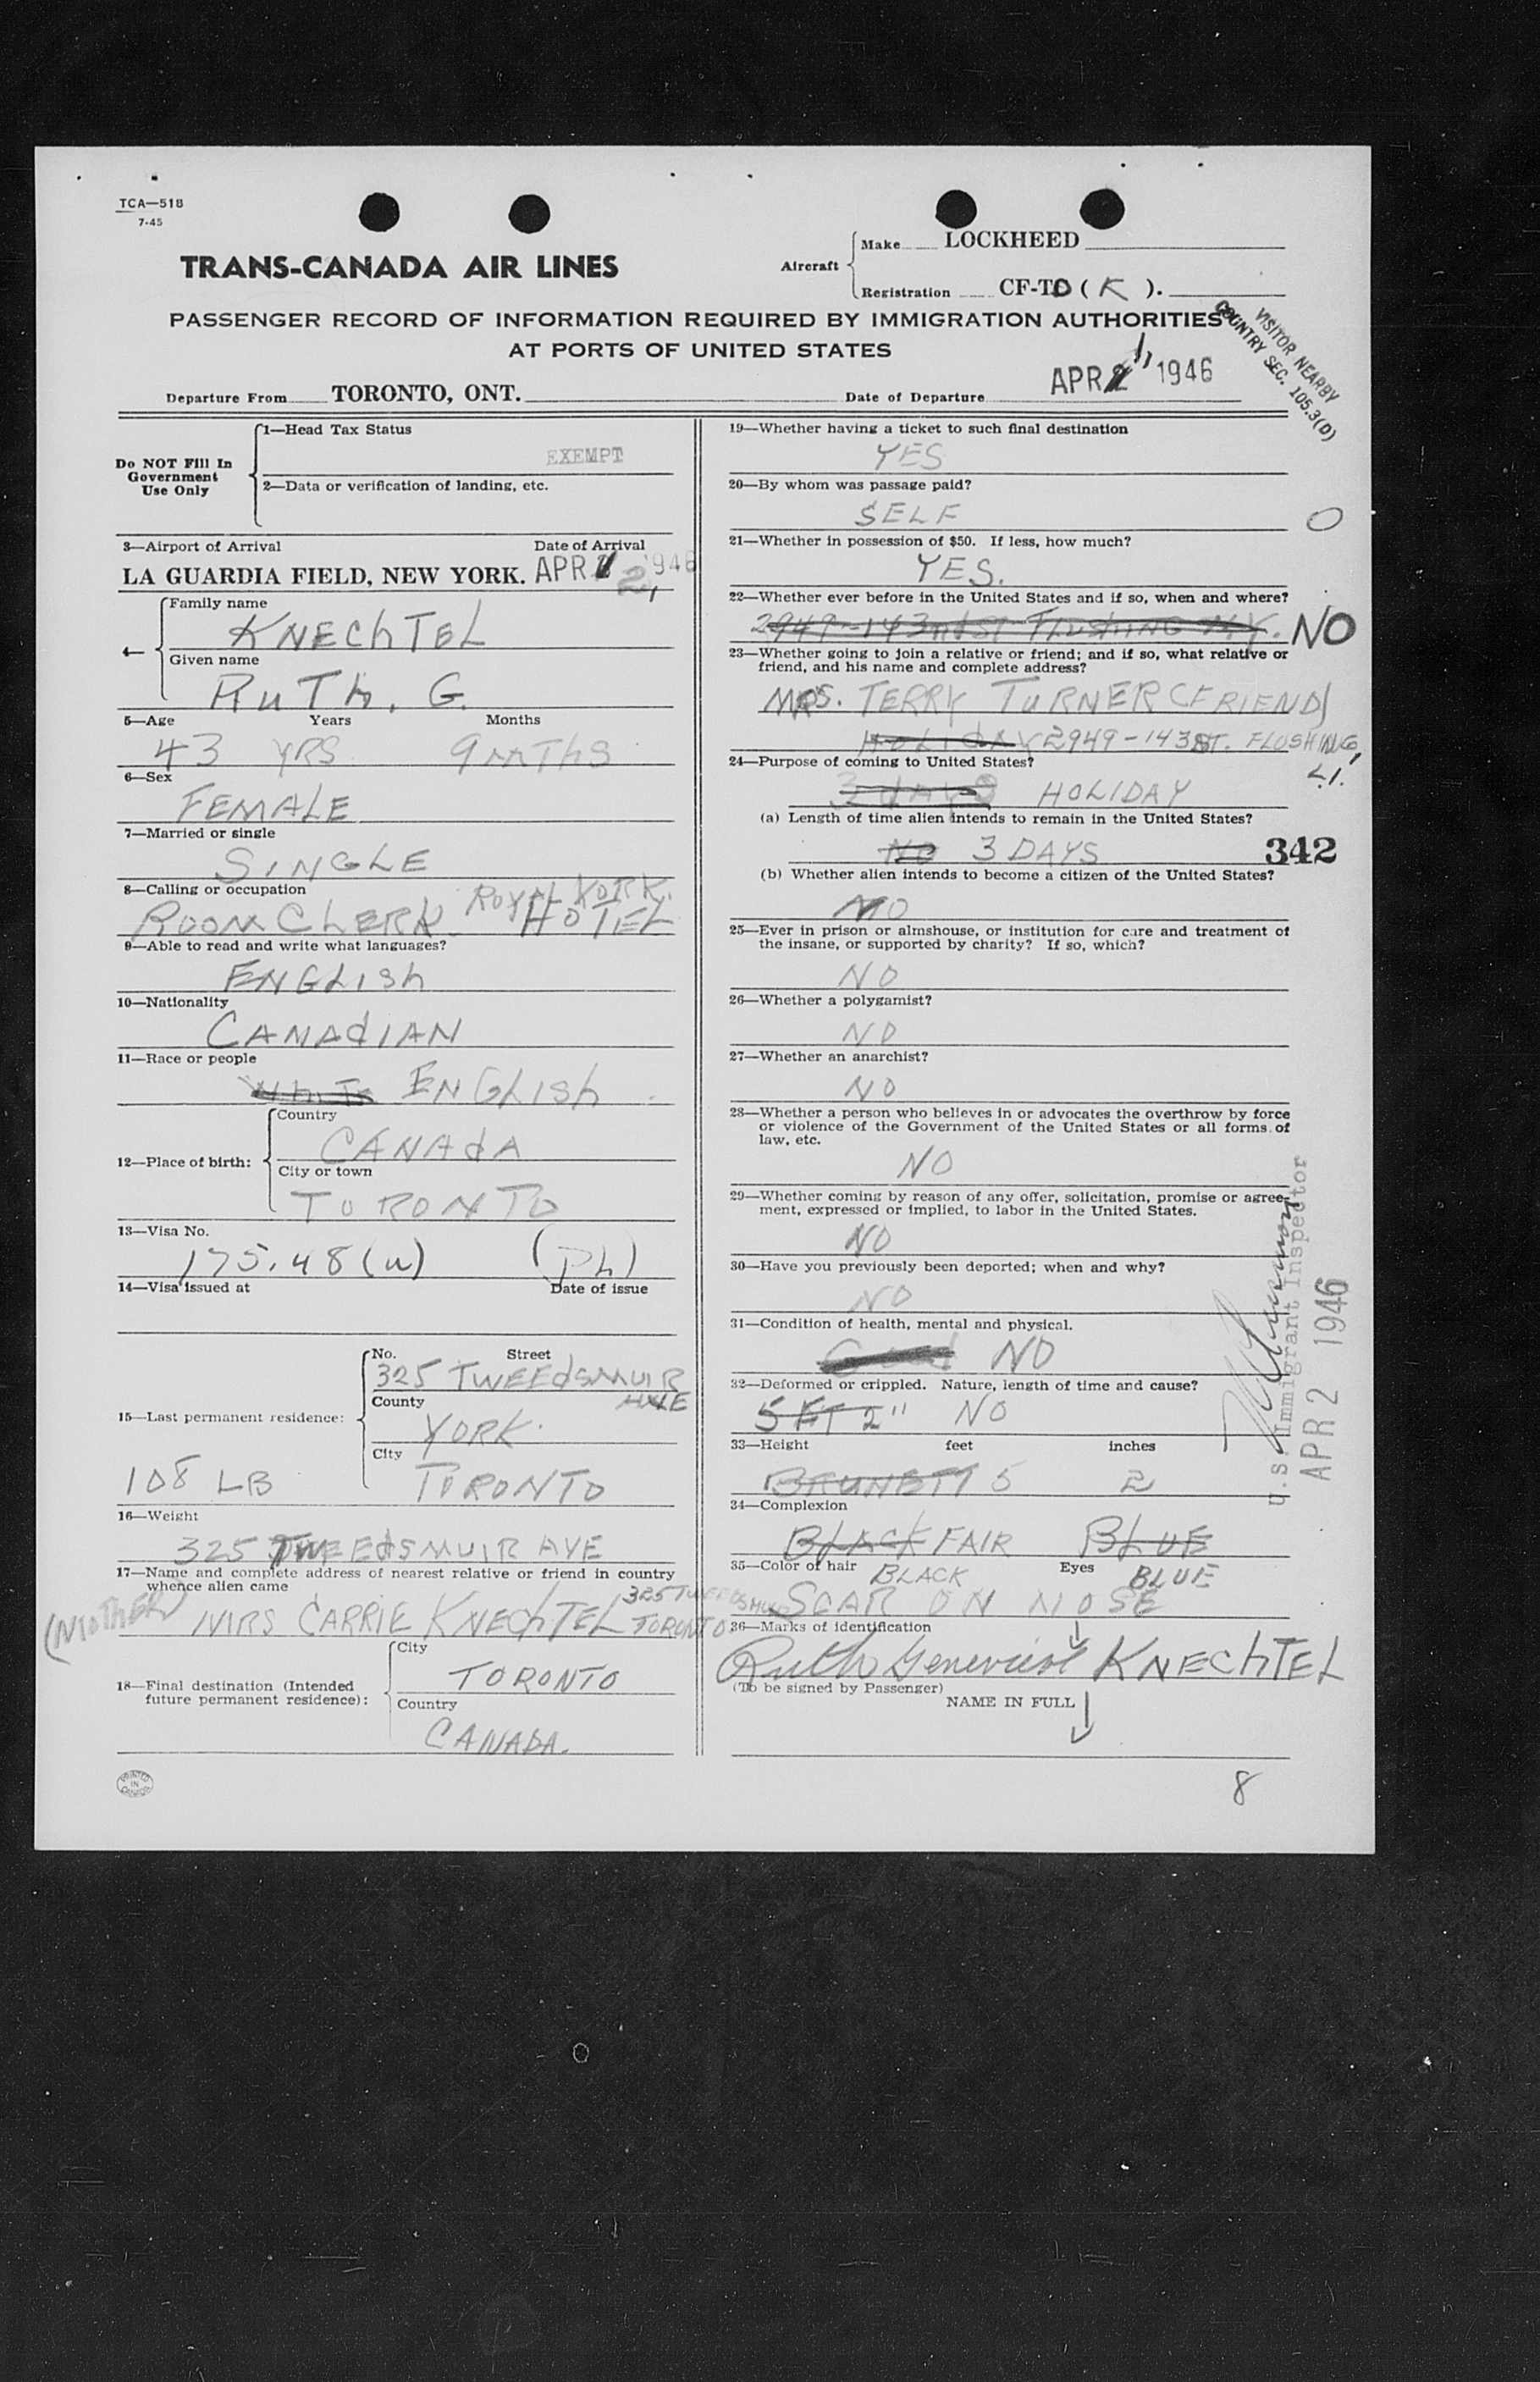 TCA—518
7-45
TRANS-CANADA AIR LINES
Aircraft
Make LOCKHEED
Registration CF-TD ( K ).
PASSENGER RECORD OF INFORMATION REQUIRED BY IMMIGRATION AUTHORITIES
AT PORTS OF UNITED STATES
VISITOR NEARBY
COUNTRY SEC. 105.3(D)
Departure From TORONTO, ONT.
Date of Departure APR 1, 1946
Do NOT Fill In
Government
Use Only
1—Head Tax Status
EXEMPT
2—Data or verification of landing, etc.
3—Airport of Arrival Date of Arrival
LA GUARDIA FIELD, NEW YORK. APR 2, 1946
4—
Family name
KNEChTEL
Given name
RuTh. G.
5—Age Years Months
43 YRS 9 mThS
6—Sex
FEMALE
7—Married or single
SINGLE
8—Calling or occupation
ROOM CLERK ROYAL YORK
HOTEL
9—Able to read and write what languages?
ENGLISh
10—Nationality
CANAdIAN
11—Race or people
WhiTe ENGLISh
12—Place of birth:
Country
CANAdA
City or town
TORONTO
13—Visa No.
175.48(w) (PL)
14—Visa issued at Date of issue
15—Last permanent residence:
No. Street
325 TWEEdSMUIR
AVE
County
YORK.
City
TORONTO
108 LB
16—Weight
325 TWEEdSMUIR AVE
17—Name and complete address of nearest relative or friend in country
whence alien came
(MOTHER) MRS CARRIE KNEChTEL 325 TWEEDSMUIR
TORONTO.
18—Final destination (Intended
future permanent residence):
City
TORONTO
Country
CANADA.
PRINTED
IN
CANADA
19—Whether having a ticket to such final destination
YES
20—By whom was passage paid?
SELF
21—Whether in possession of $50. If less, how much?
YES.
22—Whether ever before in the United States and if so, when and where?
2949-143rd ST FLUSHING N.Y. NO
23—Whether going to join a relative or friend; and if so, what relative or
friend, and his name and complete address?
MRS. TERRY TURNER (FRIEND)
HOLIdAY 2949-143 ST. FLUSHING,
L.I.
24—Purpose of coming to United States?
3 dAYS HOLIDAY
(a) Length of time alien intends to remain in the United States?
NO 3 DAYS
342
(b) Whether alien intends to become a citizen of the United States?
NO
25—Ever in prison or almshouse, or institution for care and treatment of
the insane, or supported by charity? If so, which?
NO
26—Whether a polygamist?
NO
27—Whether an anarchist?
NO
28—Whether a person who believes in or advocates the overthrow by force
or violence of the Government of the United States or all forms of
law, etc.
NO
29—Whether coming by reason of any offer, solicitation, promise or agree-
ment, expressed or implied, to labor in the United States.
NO
30—Have you previously been deported; when and why?
NO
31—Condition of health, mental and physical.
Good NO
32—Deformed or crippled. Nature, length of time and cause?
5 FT 2" NO
33—Height feet inches
BRUNETT 5 2
34—Complexion
BLACK FAIR BLUE
35—Color of hair BLACK Eyes BLUE
SCAR ON NOSE
36—Marks of identification
Ruth Genevieve KNEChTEL
(To be signed by Passenger)
NAME IN FULL
U.S. Immigrant Inspector
APR 2 1946
8